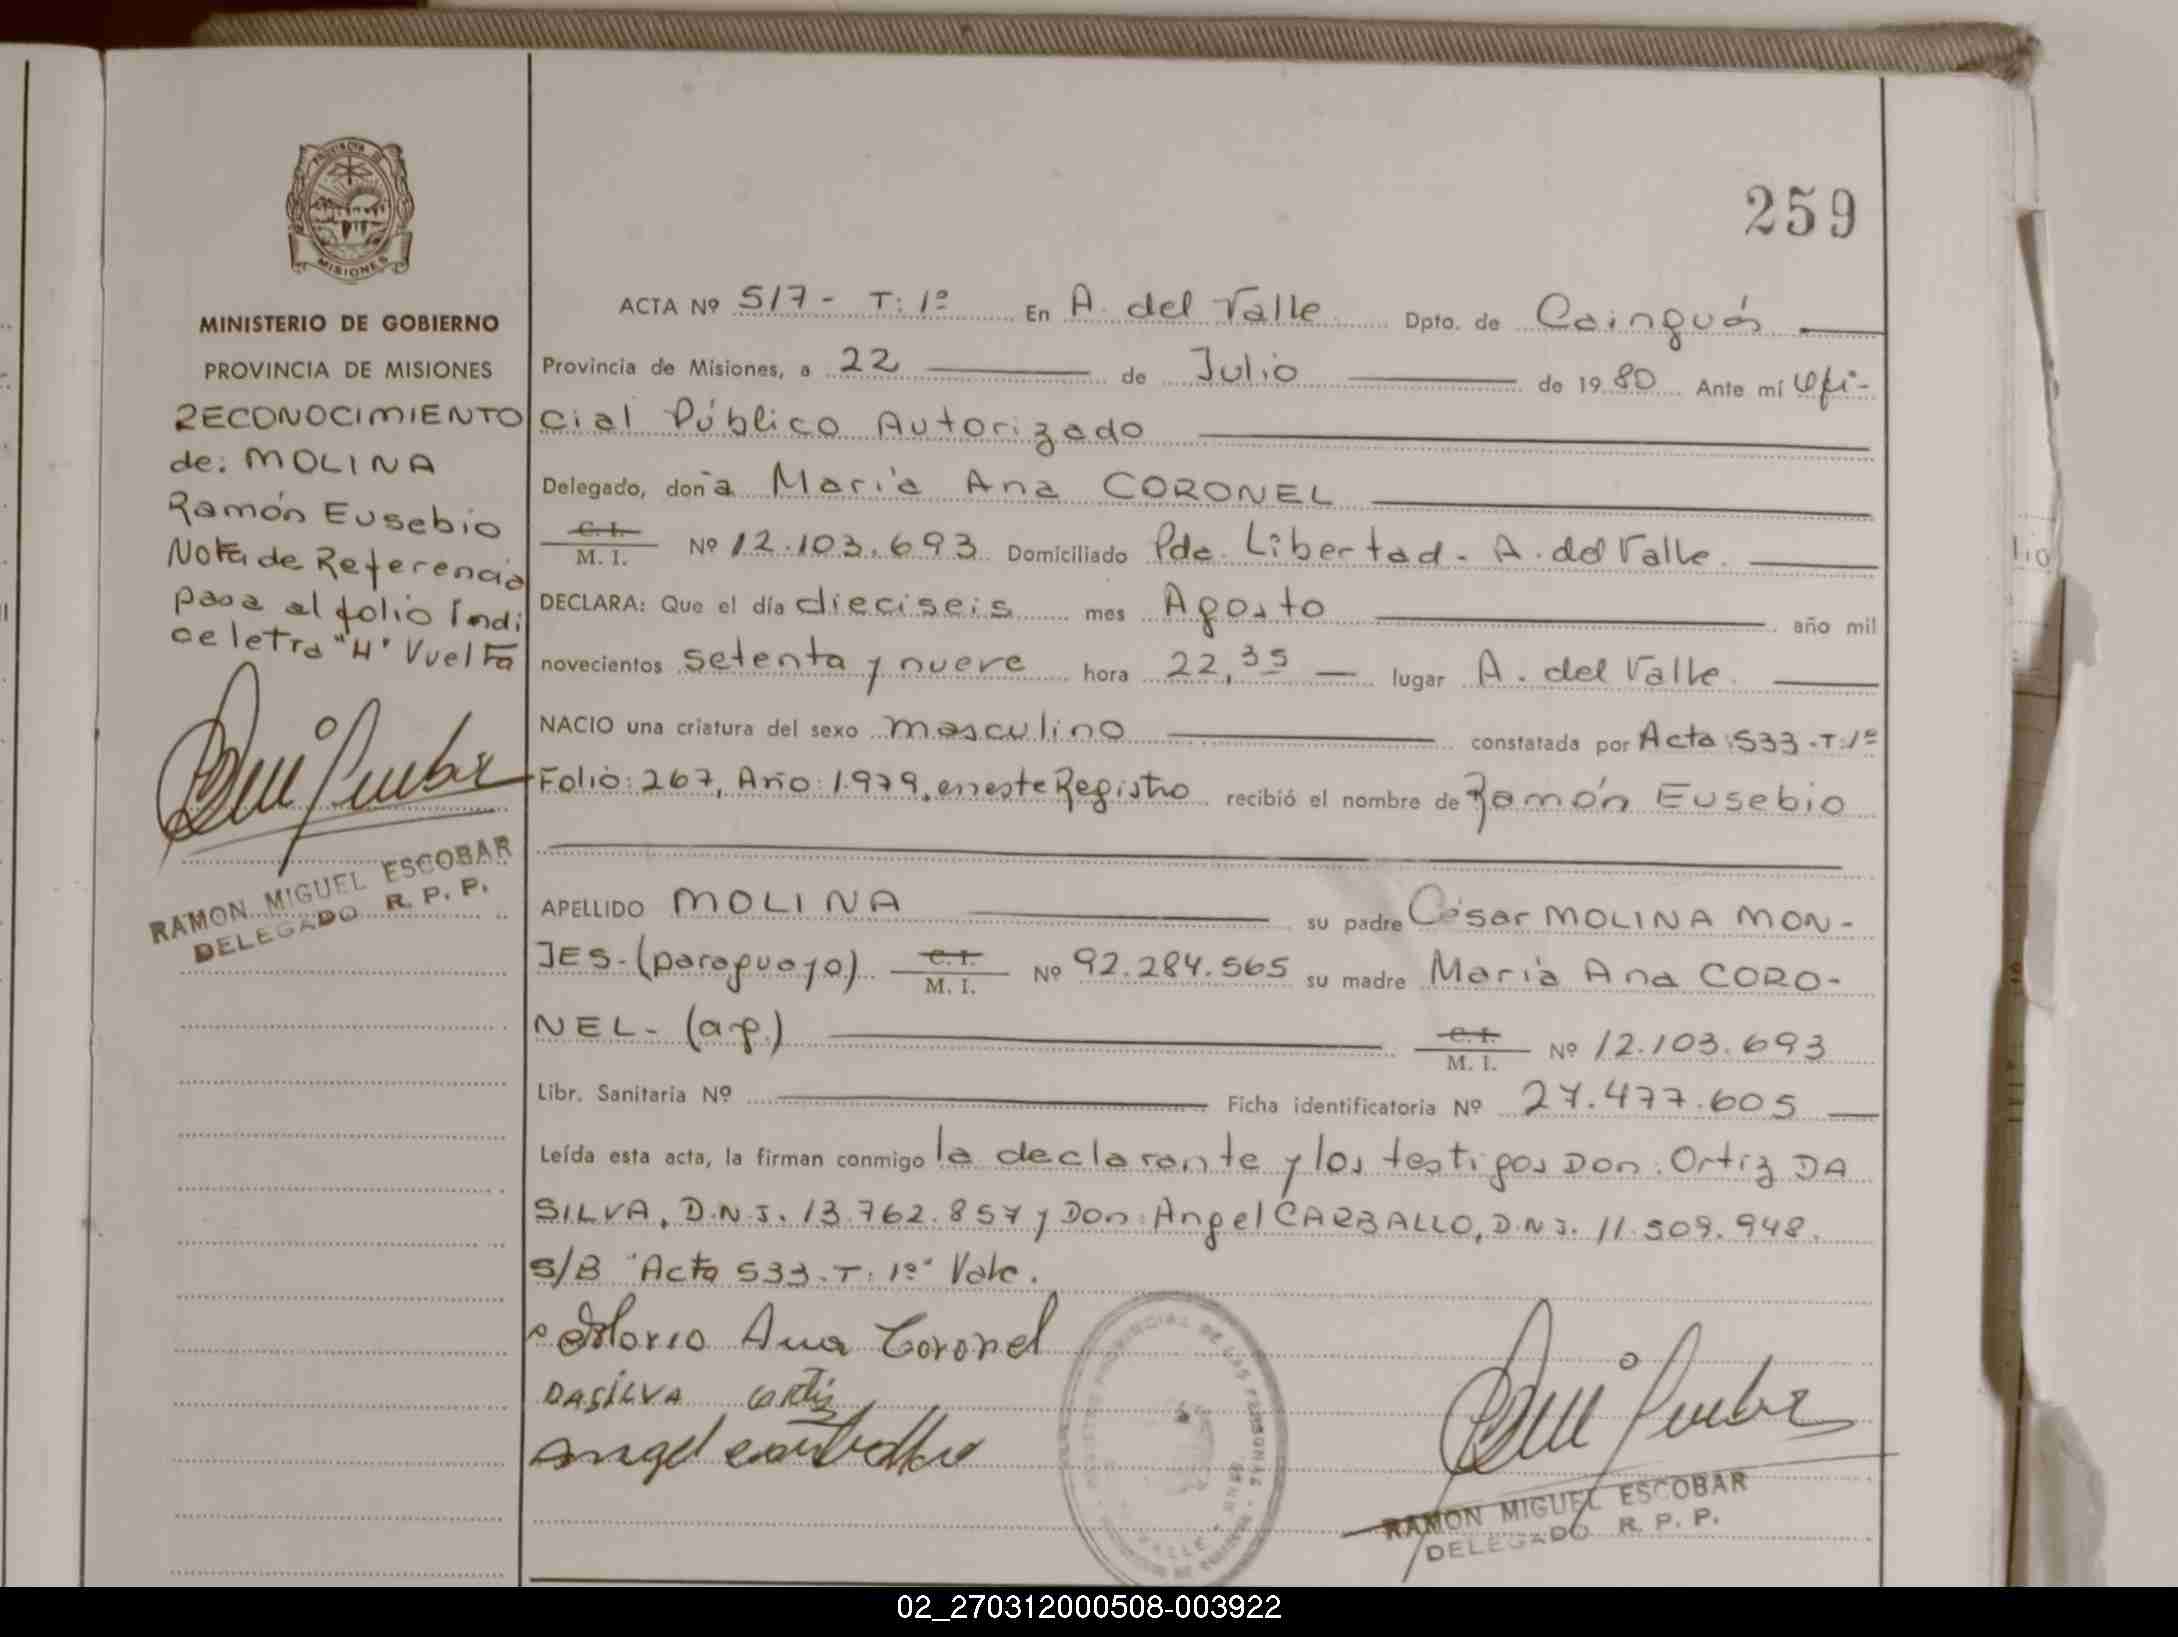 259
PROVINCIA DE
MISIONES
MINISTERIO DE GOBIERNO
PROVINCIA DE MISIONES
RECONOCIMIENTO
de: MOLINA
Ramón Eusebio
Nota de Referencia
pasa al folio Indi
ce letra "H" Vuelta
RAMON MIGUEL ESCOBAR
DELEGADO R. P. P.
ACTA Nº 517 - T: 1º En A. del Valle Dpto. de Cainguás
Provincia de Misiones, a 22 de Julio de 1980 Ante mí Ofi-
cial Público Autorizado
Delegado, doña María Ana CORONEL
C. I.
M. I. Nº 12.103.693 Domiciliado Pde. Libertad - A. del Valle.
DECLARA: Que el día dieciseis mes Agosto año mil
novecientos setenta y nueve hora 22,35 lugar A. del Valle.
NACIO una criatura del sexo masculino constatada por Acta 533 - T: 1º
Folio: 267, Año: 1.979, en este Registro recibió el nombre de Ramón Eusebio
APELLIDO MOLINA su padre César MOLINA MON-
JES - (paraguayo) C. I.
M. I. Nº 92.284.565 su madre María Ana CORO-
NEL - (arg.) C. I.
M. I. Nº 12.103.693
Libr. Sanitaria Nº Ficha identificatoria Nº 27.477.605
Leída esta acta, la firman conmigo la declarante y los testigos Don: Ortiz DA
SILVA, D.N.I. 13.762.857 y Don: Angel CARBALLO, D.N.I. 11.509.948.
S/B "Acta 533 - T: 1º" Vale.
Maria Ana Coronel
DASILVA ortiz
Angel Carballo
PROVINCIAL DE LAS PERSONAS
VALLE
RAMON MIGUEL ESCOBAR
DELEGADO R. P. P.
02_270312000508-003922